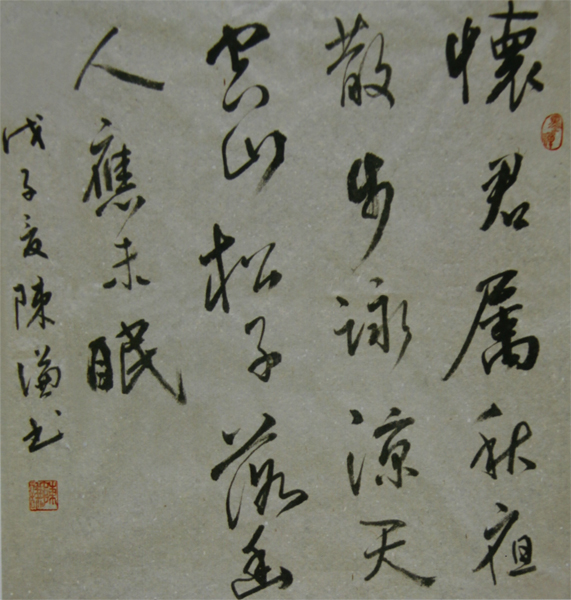 懷君屬秋夜
散步詠涼天
空山松子落幽
人應未眠
戊子夏陳謙书